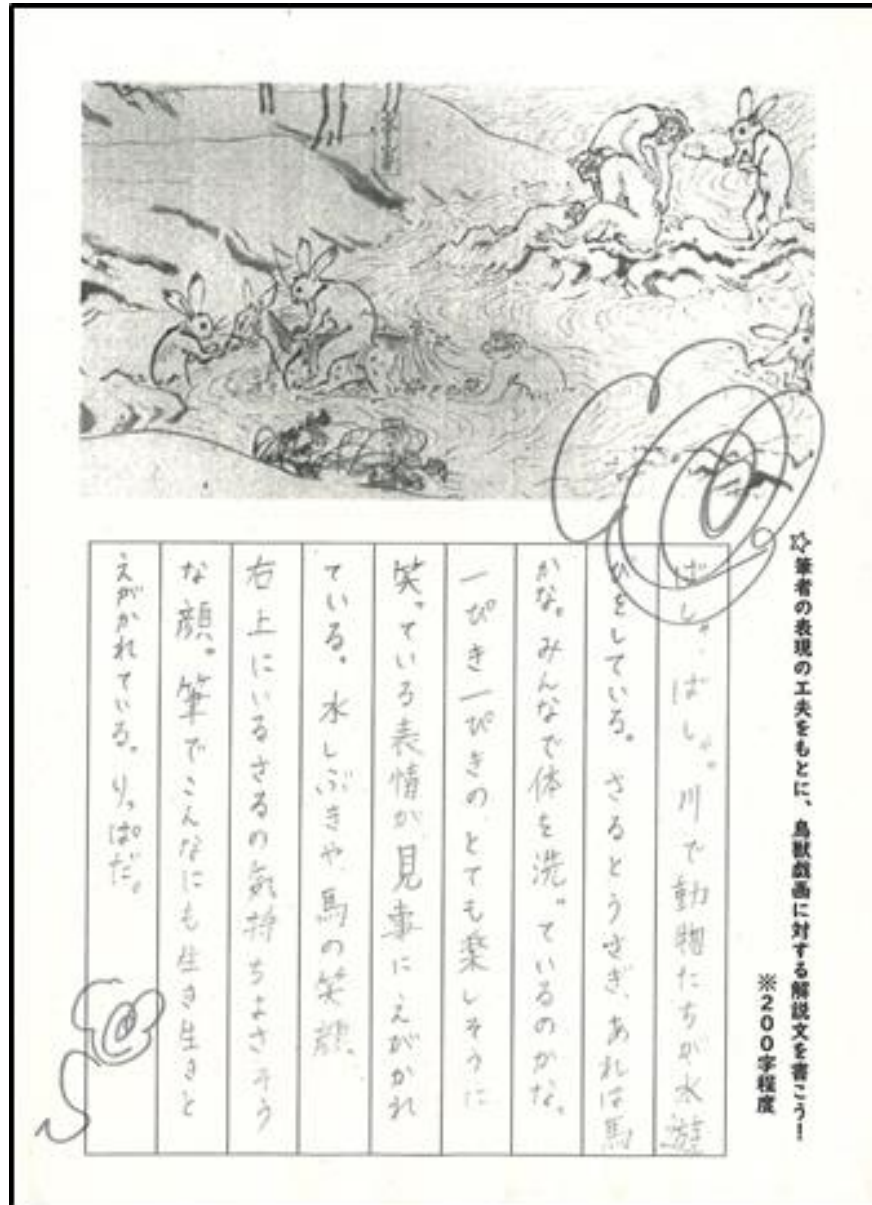 ☆筆者の表現の工夫をもとに、鳥獣戯画に対する解説文を書こう！
※200字程度
ばしゃ、ばしゃ。川で動物たちが水遊
びをしている。さるとうさぎ、あれは馬
かな。みんなで体を洗っているのかな。
一ぴき一ぴきの、とても楽しそうに
笑っている表情が、見事にえがかれ
ている。水しぶきや、馬の笑顔。
右上にいるさるの気持ちよさそう
な顔。筆でこんなにも生き生きと
えがかれている。りっぱだ。